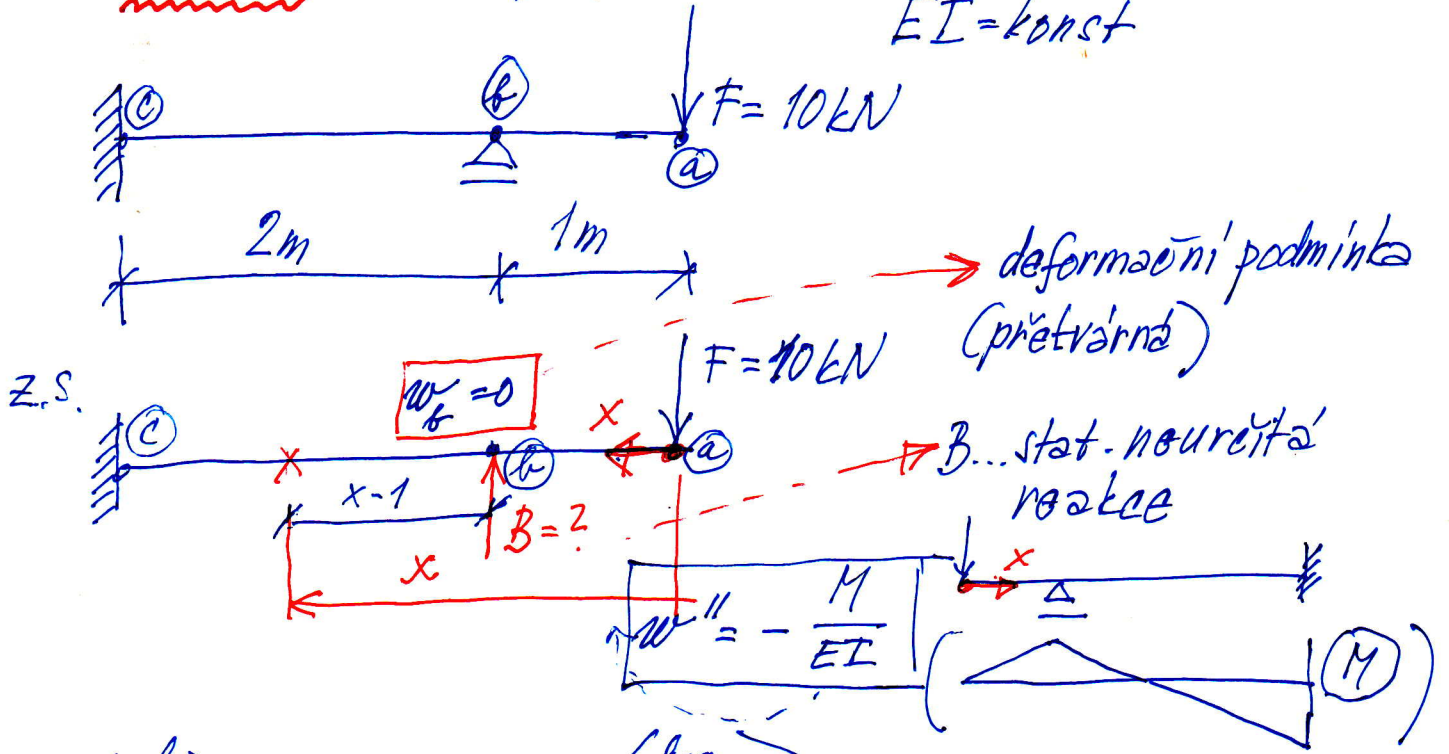 EI = konst
c
b
F = 10 kN
a
2m
1m
deformační podmínka
(přetvárná)
z.s.
c
w_b = 0
x
F = 10 kN
a
b
x
x-1
B = ?
x
B... stat. neurčitá
reakce
w'' = - M/EI
x
( M )